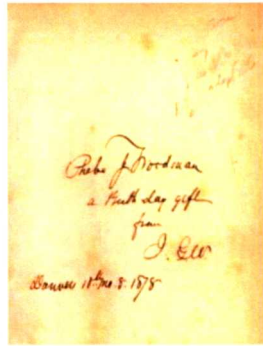 Phebe J. Woodman
a Birth day gift
from
J. G. W.
Danvers 11th mo. 8. 1878